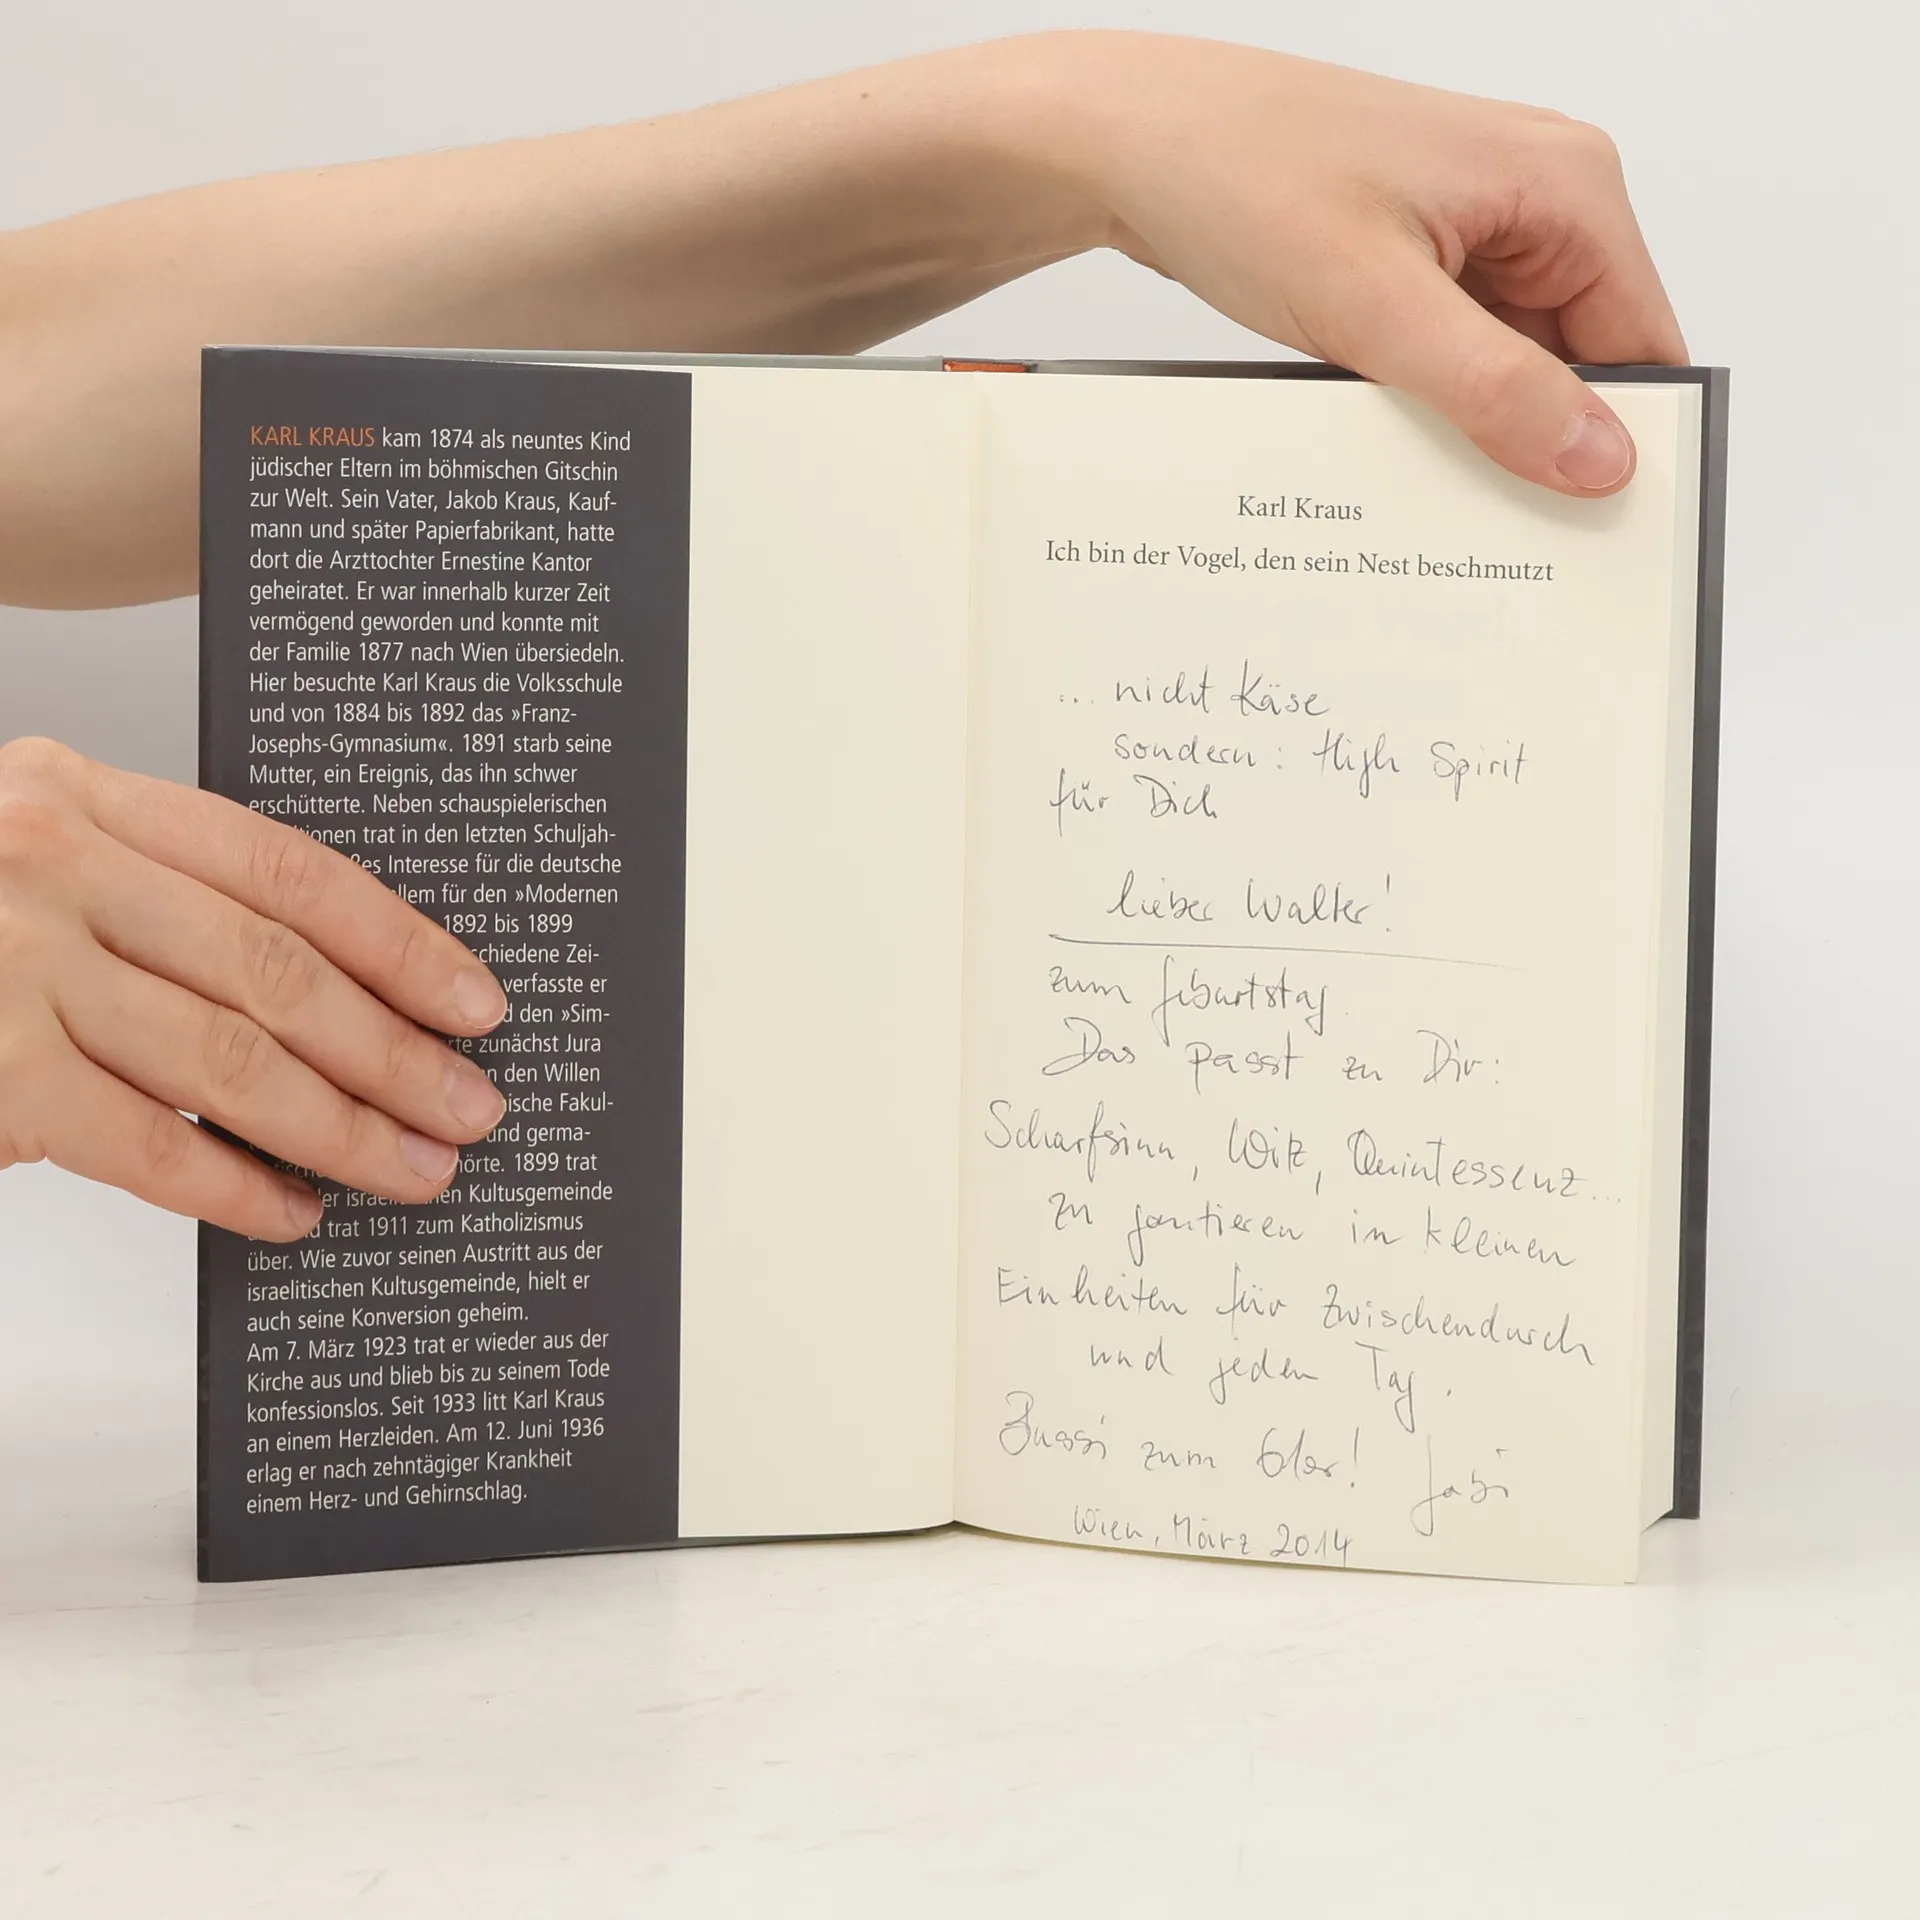 KARL KRAUS kam 1874 als neuntes Kind
jüdischer Eltern im böhmischen Gitschin
zur Welt. Sein Vater, Jakob Kraus, Kauf-
mann und später Papierfabrikant, hatte
dort die Arzttochter Ernestine Kantor
geheiratet. Er war innerhalb kurzer Zeit
vermögend geworden und konnte mit
der Familie 1877 nach Wien übersiedeln.
Hier besuchte Karl Kraus die Volksschule
und von 1884 bis 1892 das »Franz-
Josephs-Gymnasium«. 1891 starb seine
Mutter, ein Ereignis, das ihn schwer
erschütterte. Neben schauspielerischen
trat in den letzten Schuljah-
Interesse für die deutsche
für den »Modernen
1892 bis 1899
Zei-
verfasste er
den »Sim-
zunächst Jura
den Willen
Fakul-
und germa-
1899 trat
Kultusgemeinde
trat 1911 zum Katholizismus
über. Wie zuvor seinen Austritt aus der
israelitischen Kultusgemeinde, hielt er
auch seine Konversion geheim.
Am 7. März 1923 trat er wieder aus der
Kirche aus und blieb bis zu seinem Tode
konfessionslos. Seit 1933 litt Karl Kraus
an einem Herzleiden. Am 12. Juni 1936
erlag er nach zehntägiger Krankheit
einem Herz- und Gehirnschlag.
Karl Kraus
Ich bin der Vogel, den sein Nest beschmutzt
... nicht Käse
sondern: High Spirit
für Dich
lieber Walter!
zum Geburtstag.
Das passt zu Dir:
Scharfsinn, Witz, Quintessenz...
zu goutieren in kleinen
Einheiten für Zwischendurch
und jeden Tag.
Bussi zum 6ler! Gabi
Wien, März 2014